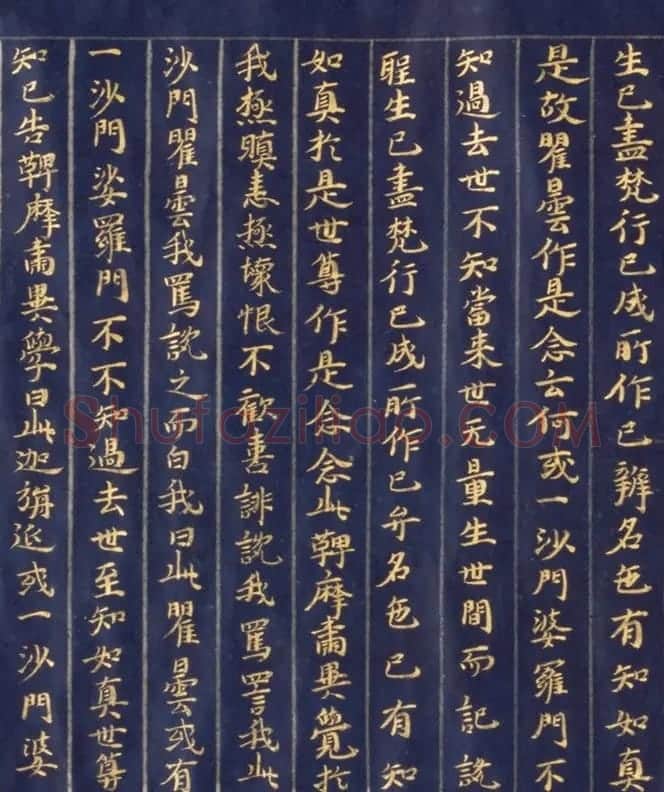 生已盡梵行已成所作已辦名色有知如真
是故瞿曇作是念云何或一沙門婆羅門不
知過去世不知當来世无量生世間而記說
生已盡梵行已成所作已弁名色已有知
如真於是世尊作是念念此鞞摩肅異覺於
我極瞋恚極懷恨不歡喜誹說我罵詈我此
沙門瞿曇我罵說之而白我曰此瞿曇或有
一沙門娑羅門不不知過去世至知如真世尊
知已告鞞摩肅異學曰此迦旃近或一沙門婆
Shufaziliao.COM